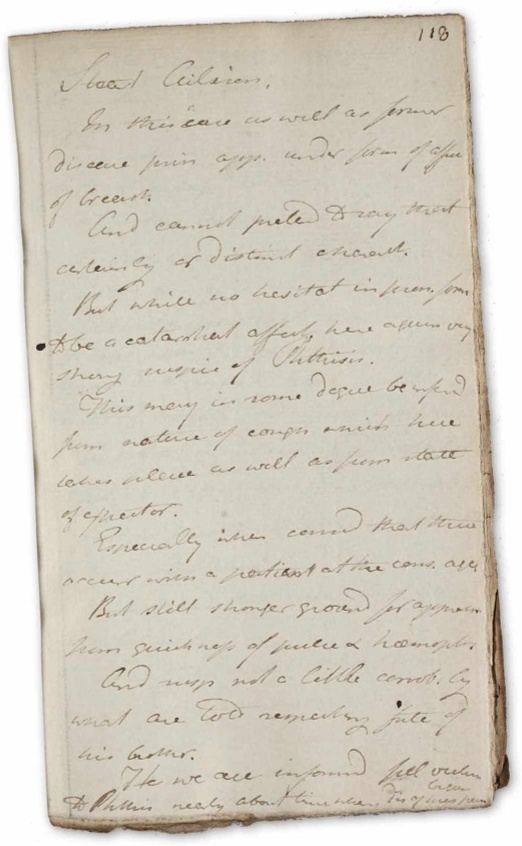 118
In this case as well as former
disease prin. app. under form of affec
of breast.
And cannot preted to say that
certainly of distinct charact.
But while no hesitat in pron. form
to be a catarrhal affect, here again very
strong suspic of Phthisis.
This may in some degree be inferd
from nature of cough which here
takes place as well as from state
of expector.
Especially when consid that these
occur with a patient at the cons. age
But still stronger ground for appreh
from quickness of pulse & hæmopt.
And susp not a little corrob. by
what are told respecting fate of
his brother.
He we are informd fell victim
to Phthis nearly about time when dis